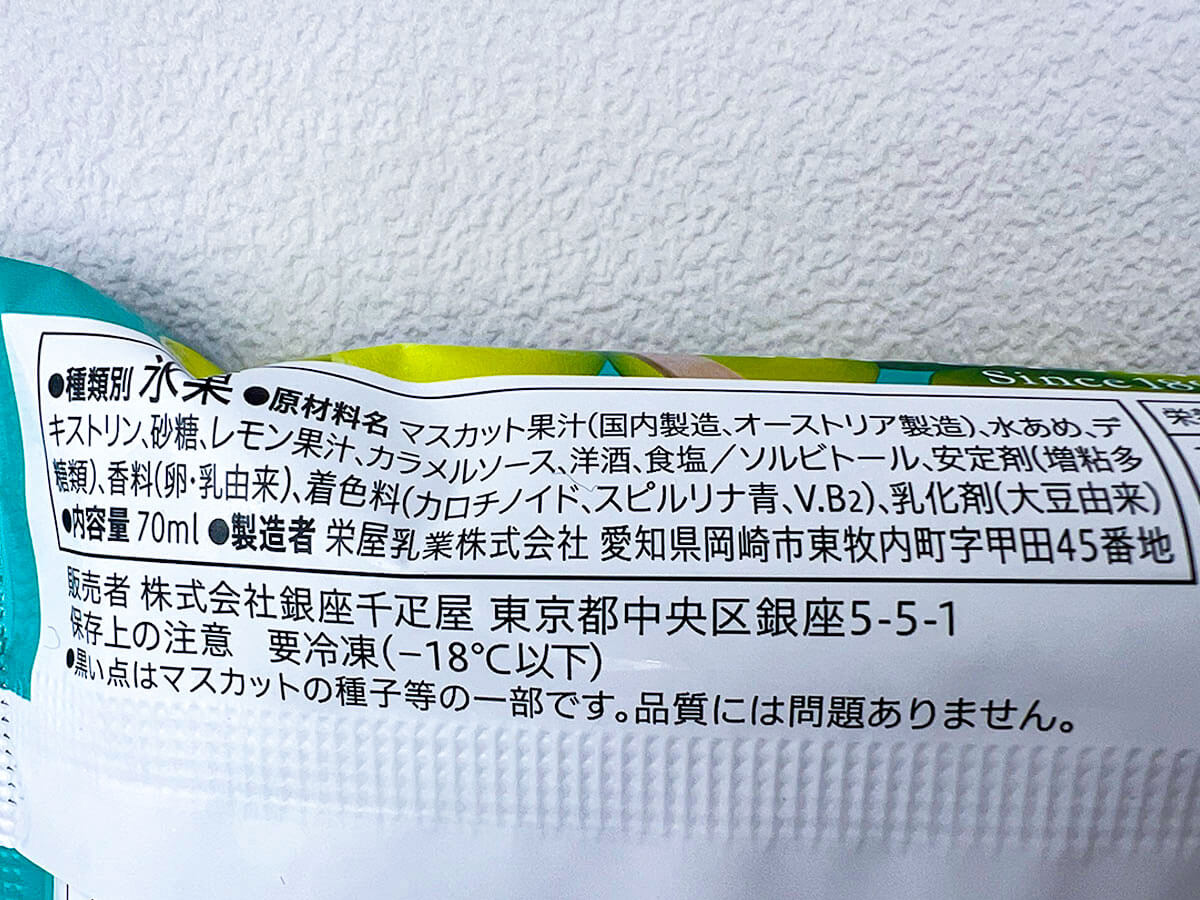 Since 18
●種類別 氷菓 ●原材料名 マスカット果汁(国内製造、オーストリア製造)、水あめ、デ
キストリン、砂糖、レモン果汁、カラメルソース、洋酒、食塩／ソルビトール、安定剤(増粘多
糖類)、香料(卵・乳由来)、着色料(カロチノイド、スピルリナ青、V.B2)、乳化剤(大豆由来)
●内容量 70ml ●製造者 栄屋乳業株式会社 愛知県岡崎市東牧内町字甲田45番地
販売者 株式会社銀座千疋屋 東京都中央区銀座5-5-1
保存上の注意 要冷凍(−18℃以下)
●黒い点はマスカットの種子等の一部です。品質には問題ありません。